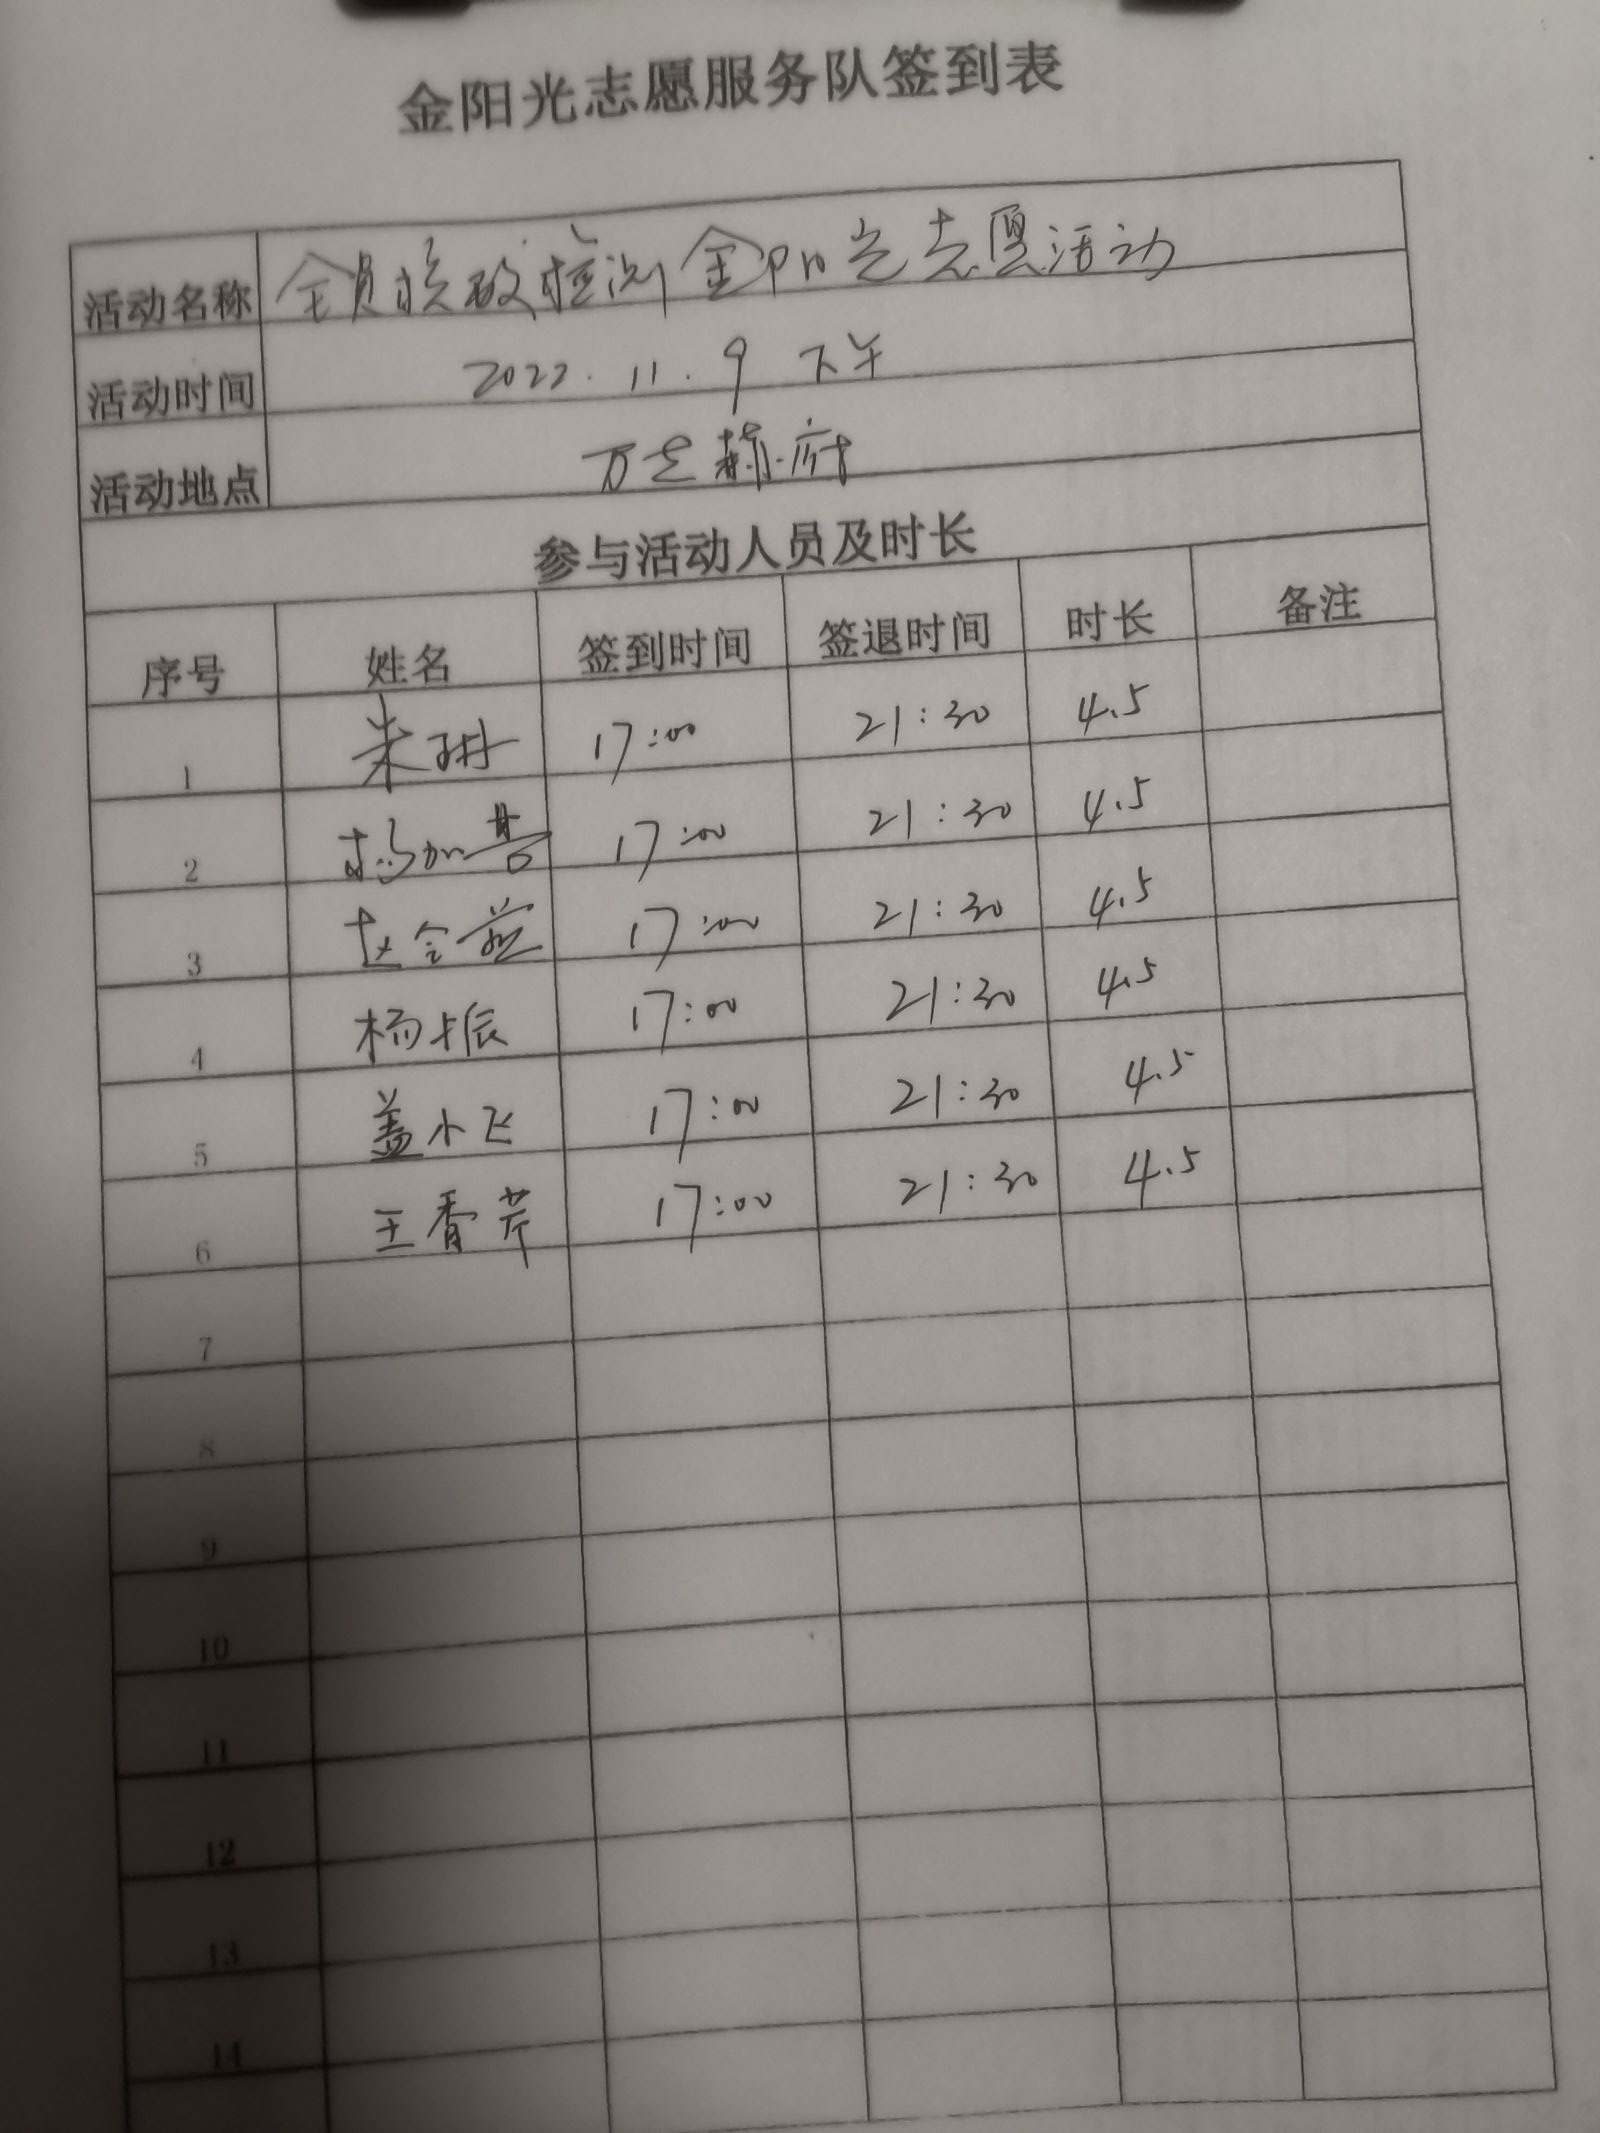 金阳光志愿服务队签到表
活动名称 全员核酸检测金阳光志愿活动
活动时间 2022.11.9 下午
活动地点 万芝赫府
参与活动人员及时长
序号 姓名 签到时间 签退时间 时长 备注
1 朱琳 17:00 21:30 4.5
2 杨加 17:00 21:30 4.5
3 赵会 17:00 21:30 4.5
4 杨振 17:00 21:30 4.5
5 盖小飞 17:00 21:30 4.5
6 王香芹 17:00 21:30 4.5
7
8
9
10
11
12
13
14